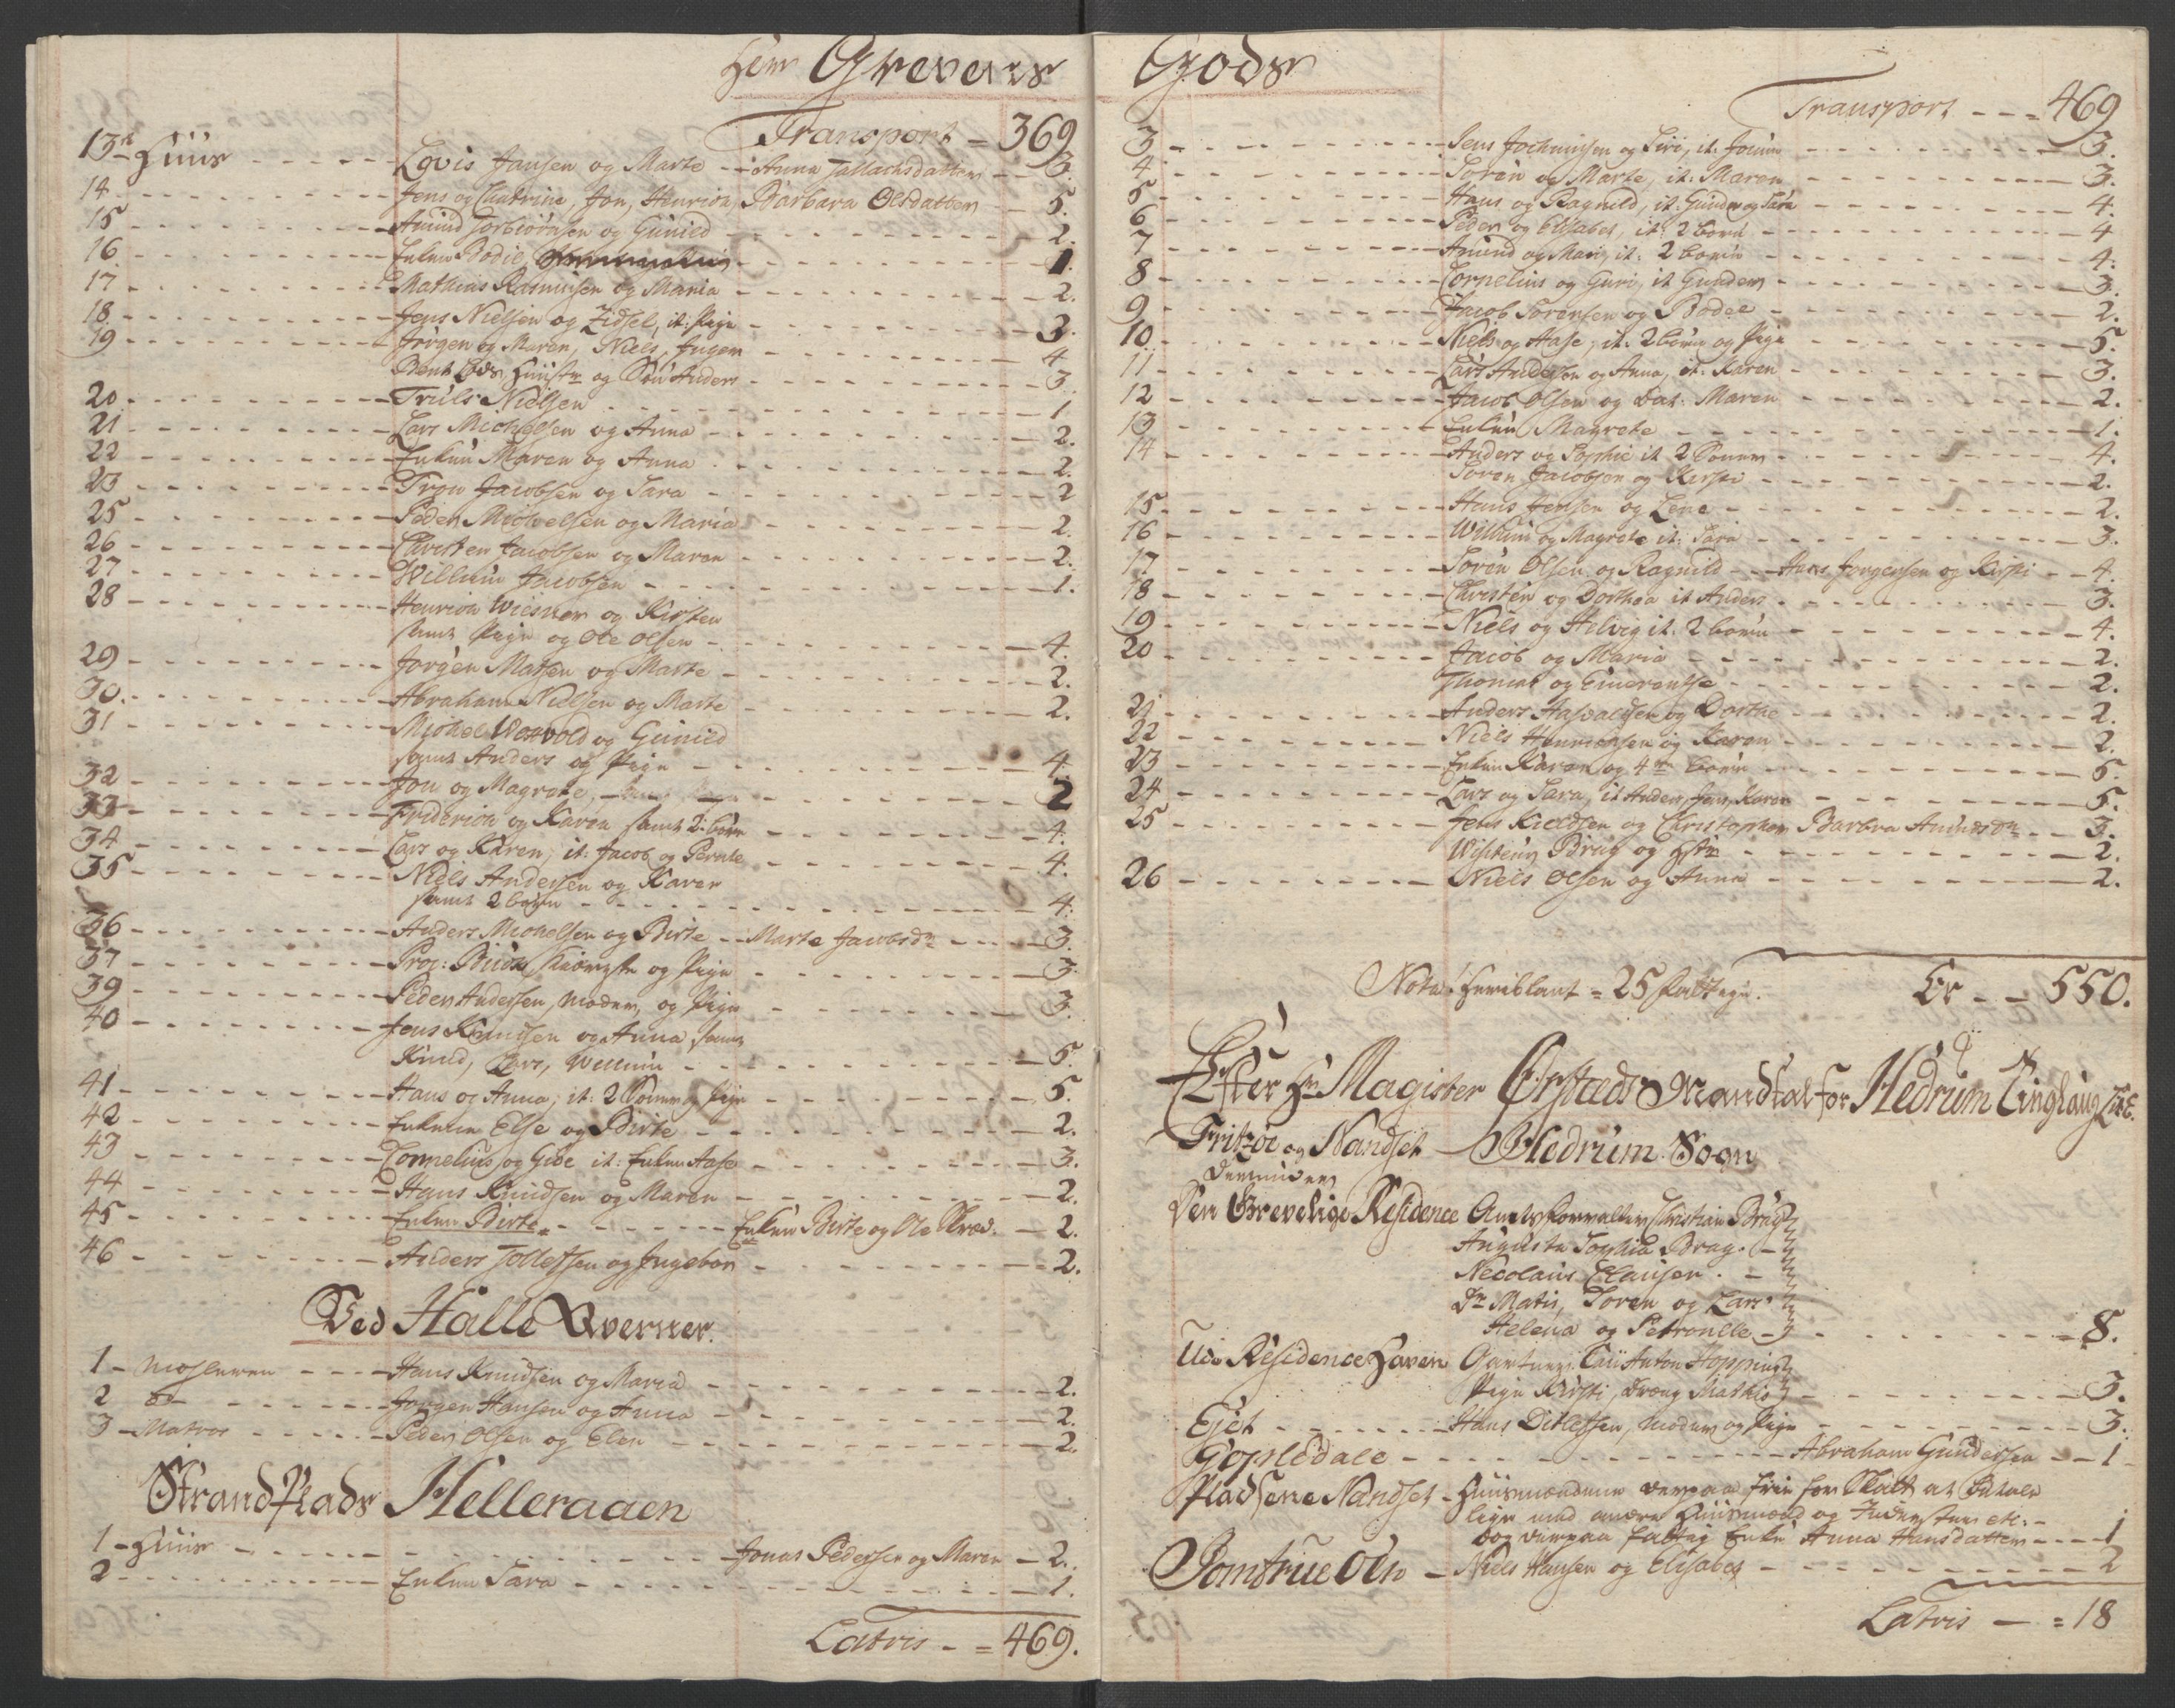 Herr Grevens
Transport - 369
13de Huus - Lovis Jansen og Marte - Anna Tallachsdatter - 3.
14 - Jens og Chatrine, Jon, Henrich, Barbara Olsdatter - 5.
15 - Amund Torbiörnsen og Gunild - 2.
16 - Enken Bodil, - 1.
17 - Mathias Rasmusen og Maria - 2.
18 - Jens Nielsen og Zidsel, it: Pige - 3.
19 - Jörgen og Maren, Niels, Inger - 4
Bent Hustr og Sön Anders - 3
20 - Truls Nielsen - 1
21 - Lars Michelsen og Anna - 2.
22 - Enken Maren og Anna - 2.
23 - Tron Jacobsen og Sara - 2
25 - Peder Michelsen og Maria - 2.
26 - Christen Jacobsen og Maren - 2.
27 - Willum Jacobsen - 1.
28 - Henrich Wiesner og Kirsten
samt Pige og Ole Olsen - 4.
29 - Jorgen Matsen og Marte - 2.
30. - Abraham Nielsen og Marte - 2.
31 - Michel Warvold og Gunild
samt Anders og Pige - 4.
32 - Jon og Magrete, - 2
33 - Friderich og Karen samt 2 börn - 4.
34 - Lars og Karen, it: Jacob og Pernle - 4.
35 - Niels Andersen og Karen
samt 2 börn - 4.
36 - Anders Michelsen og Birte - Marte Jacobsdr - 3.
37 - Proc: Buch Kiæreste og Pige - 3.
39 - Peder Andersen, Moder, og Pige - 3.
40 - Jens Knudsen og Anna samt
Knud, Lars, Willum - 5.
41 - Hans og Anna, it: 2 Sönner og Pige - 5.
42 - Enken Else og Birte - 2.
43 - Cornelius og Gide it: Enken Aase - 3.
44 - Hans Knudsen og Maren - 2.
45 - Enken Birte - Enken Birte og Ole - 2.
46 - Anders Tollefsen og Ingebor - 2.
Ved Halle Qverner.
1 - Mosleren - Hans Knudsen og Maria - 2.
2 do - Jorgen Hansen og Anna - 2.
3 - Matros - Peder Olsen og Elen - 2.
Strand Plads Helleraaen
1 - Huus - Jonas Pedersen og Maren - 2.
2 - Enken Sara - 1.
Latris - = 469.
Gods
Transport - = 469
3 - Jens Jochumsen og Siri, it: Jorun - 3.
4 - Sören og Marte, it: Maren - 3.
5 - Hans og Ragnild, it: Gunder og Sara - 4.
6 - Peder og Elisabet, it: 2 börn - 4
7 - Amund og Mari, it: 2 börn - 4.
8 - Cornelius og Guri, it Gunder - 3.
9 - Jacob Sorensen og Bodel - 2.
10 - Niels og Aase, it: 2 börn og Pige - 5.
11 - Lars Andersen og Anna, it: Karen - 3.
12 - Jacob Olsen og Dat: Maren - 2.
13 - Enken Magrete - 1.
14 - Anders og Sophie it 2 Sönner - 4.
Sören Jacobsen og Kirsti - 2.
15 - Hans Jensen og Lene - 2.
16 - Willum og Magrete it: Sara - 3.
17 - Sören Olsen og Ragnild - Hans Jorgensen og Kirsti - 4.
18 - Christen og Dorthea it Anders - 3.
19 - Niels og Helvig it: 2 börn - 4.
20 - Jacob og Maria - 2.
Thomas og Emerentse - 2.
21 - Anders Aasvaldsen og Dorthe - 2.
22 - Niels Henrichsen og Karen - 2.
23 - Enken Karen og 4re börn - 5.
24 - Lars og Sara, it Anders, Jens, Karen - 5.
25 - Jens Kieldsen og Christopher Barbra Amundsdr - 3.
Visiteur Brug og Hstr - 2.
26 - Niels Olsen og Anna - 2.
Nota: Heriblant = 25 fattige. Er - - 550.
Efter Hr Magister Örsteds Mandtal for Hedrum Tinglaug
Fritzöe og Nandset - Hedrum Sogn
Derunder
Den Grevelige Residence Amtsforvalter Christian Brug
Augusta Sophia Brag. -
Nicolaus Clausen. -
Dr Matis, Soren og Lars
Helena og Petronelle - 8.
Udi Residence Haven Gartner Anton Hopping
Pige Kirsti, Dreng Mathis - 3.
Ejet - Hans Ditlefsen, Moder og Pige - 3.
Gopledale - Abraham Gundersen - 1
Pladsene Nandset - Huusmændene frie for Skatt at Betale
lige med andre Huusmænd og Inderster etc. -
dog fattig Enke Anna Hansdatter - 1
Jomfrue Oln - Niels Hansen og Elisabet - 2
Latris - = 18